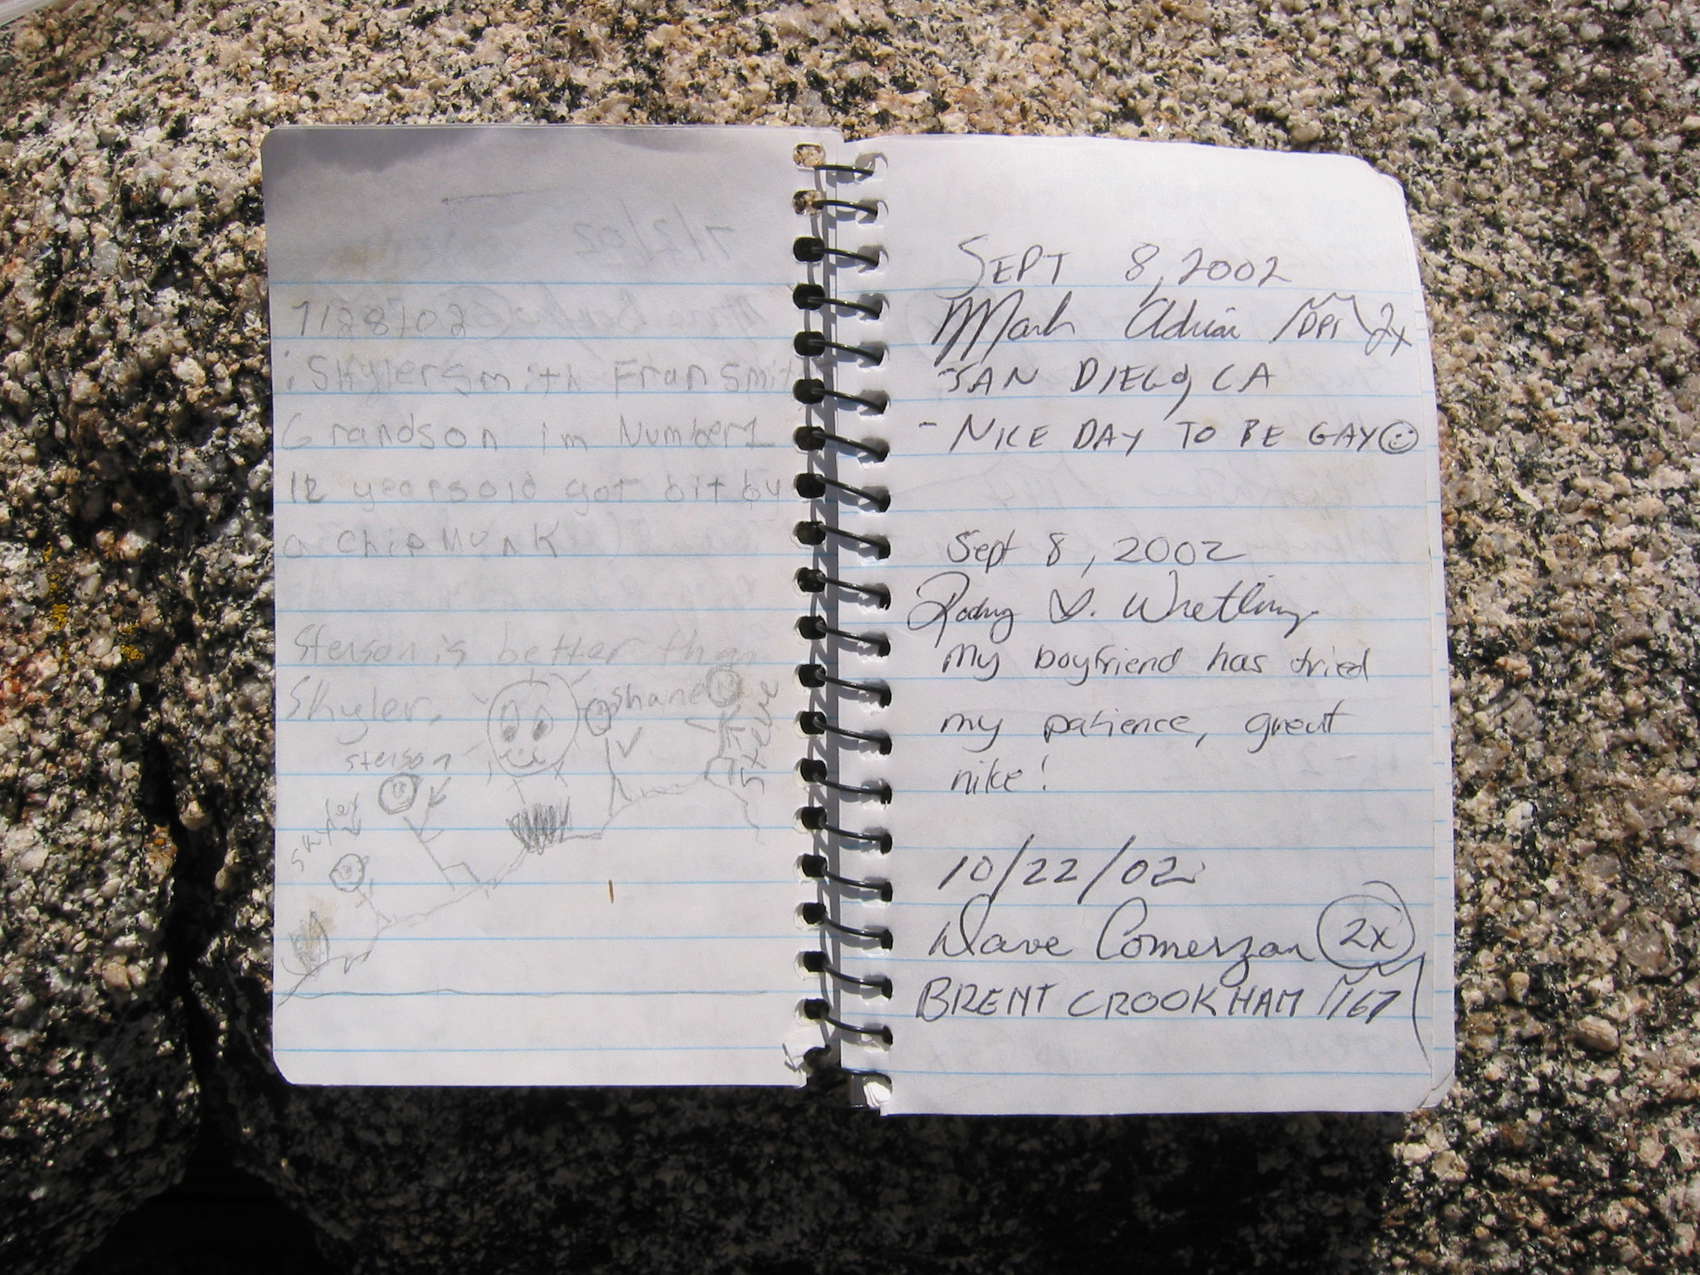 7/28/02
i Skyler smith Fran Smit
Grandson im Number 1
12 years old got bit by
a chipMunk
Sterson is better than
Skyler.
shane
Steve
sterson
skyler
7/2/02
SEPT 8, 2002
Mark Adrian /DPS 2x
SAN DIEGO, CA
- NICE DAY TO BE GAY
Sept 8, 2002
My boyfriend has tried
my patience, great
hike!
10/22/02
Dave Comerzan 2x
BRENT CROOKHAM 167